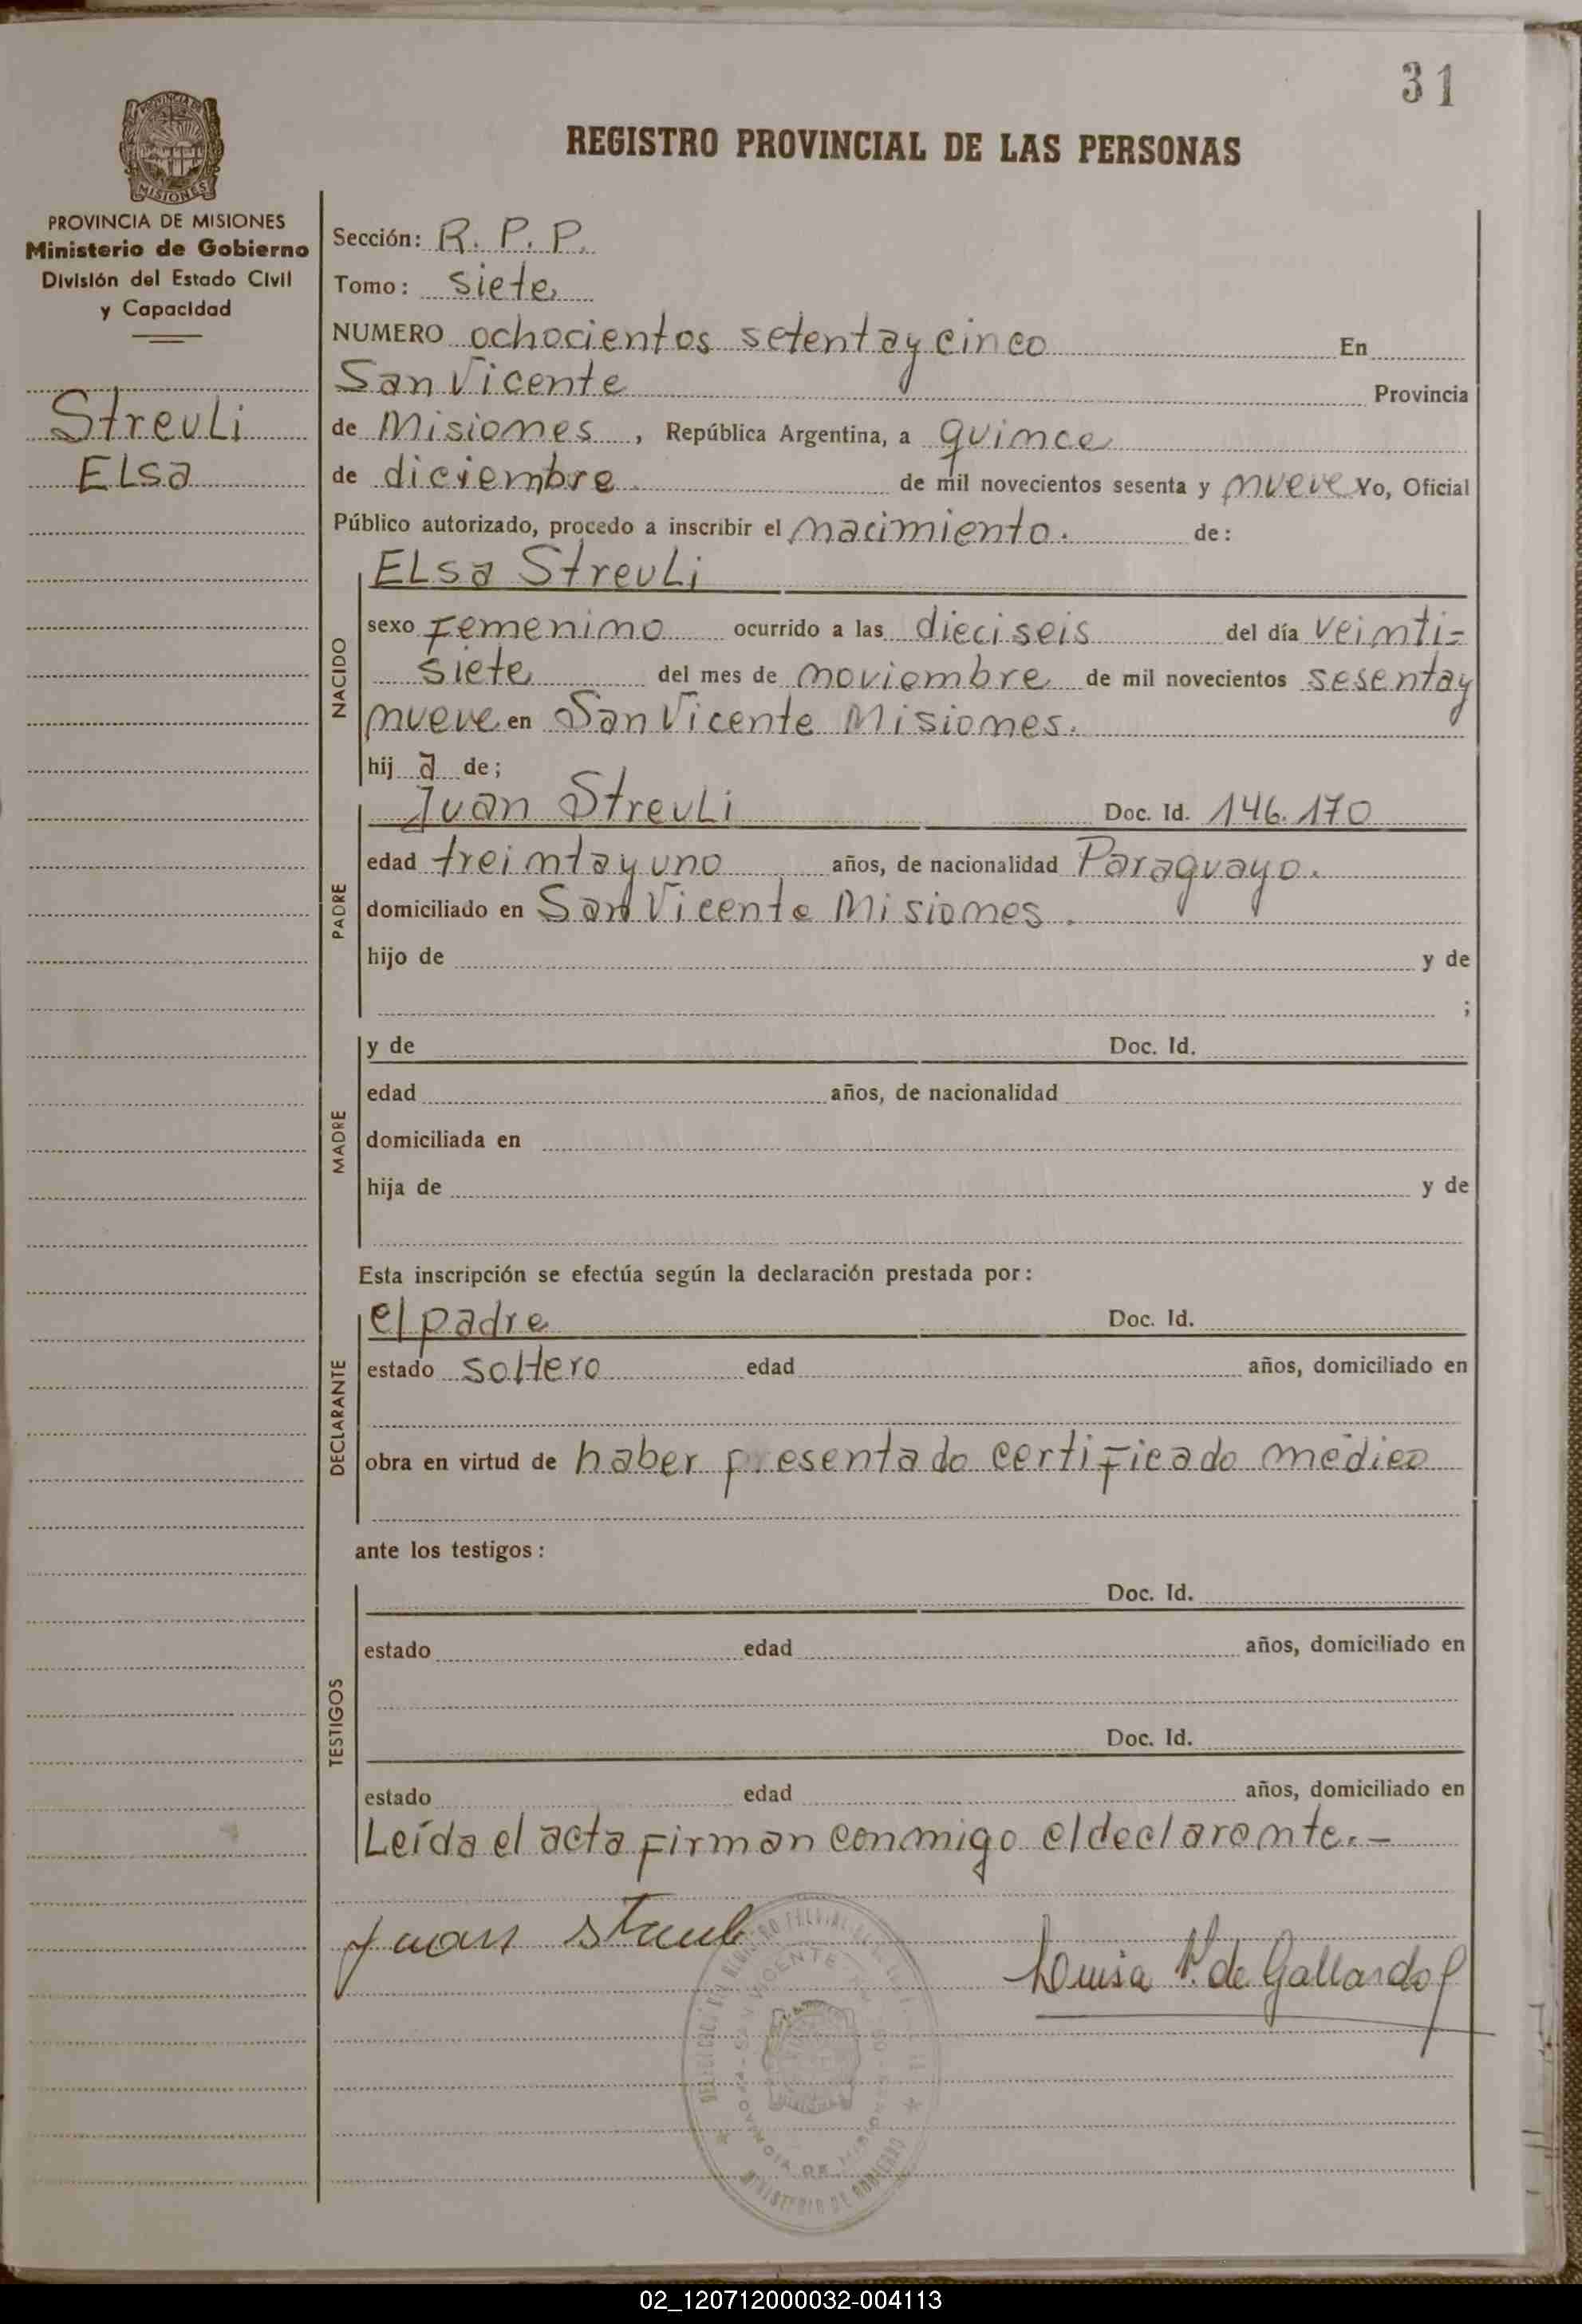 31
REGISTRO PROVINCIAL DE LAS PERSONAS
PROVINCIA DE MISIONES
Ministerio de Gobierno
División del Estado Civil
y Capacidad
Streuli
Elsa
Sección: R. P. P.
Tomo: siete
NUMERO ochocientos setenta y cinco En
San Vicente Provincia
de Misiones, República Argentina, a quince
de diciembre. de mil novecientos sesenta y nueve Yo, Oficial
Público autorizado, procedo a inscribir el nacimiento. de:
NACIDO
Elsa Streuli
sexo Femenino ocurrido a las dieciseis del día veinti=
siete del mes de noviembre de mil novecientos sesenta y
nueve en San Vicente Misiones.
hij a de;
PADRE
Juan Streuli Doc. Id. 146.170
edad treinta y uno años, de nacionalidad Paraguayo.
domiciliado en San Vicente Misiones.
hijo de y de
;
MADRE
y de Doc. Id.
edad años, de nacionalidad
domiciliada en
hija de y de
Esta inscripción se efectúa según la declaración prestada por:
DECLARANTE
el padre Doc. Id.
estado soltero edad años, domiciliado en
obra en virtud de haber presentado certificado médico
ante los testigos:
TESTIGOS
Doc. Id.
estado edad años, domiciliado en
Doc. Id.
estado edad años, domiciliado en
Leída el acta firman conmigo el declarante.-
Juan
Louisa V. de Gallardo
SAN VICENTE
MINISTERIO DE GOBIERNO
02_120712000032-004113